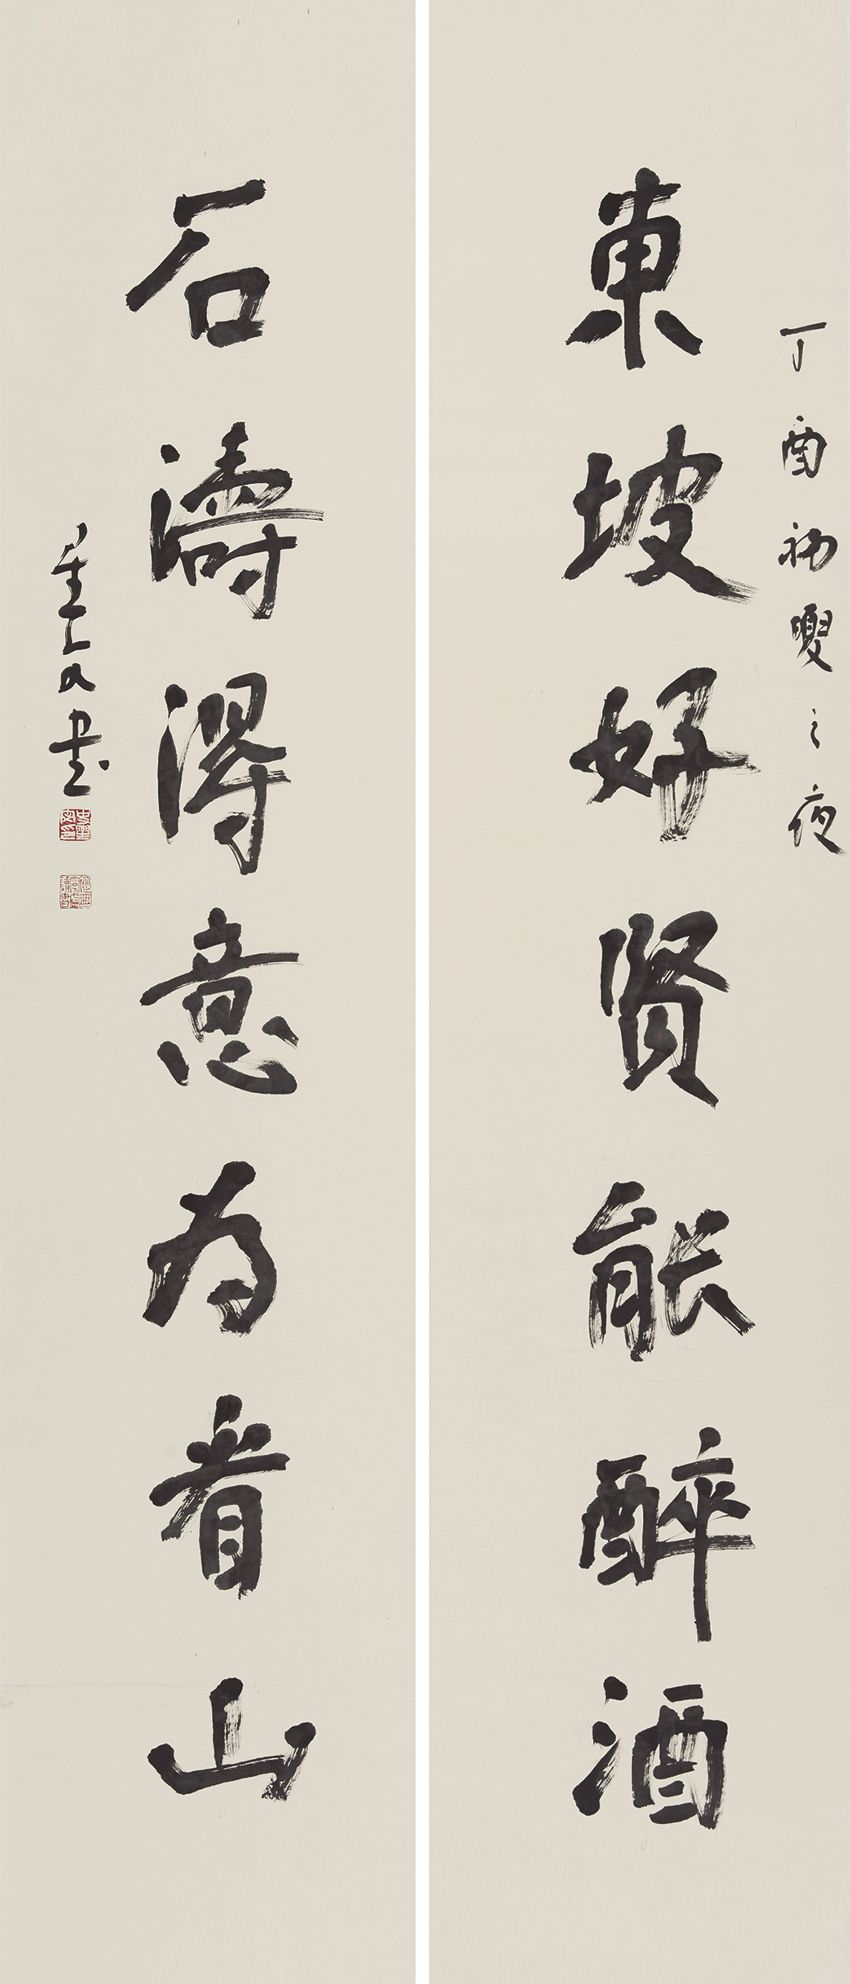 丁酉初夏之夜
東坡好賢能醉酒
石濤得意為看山